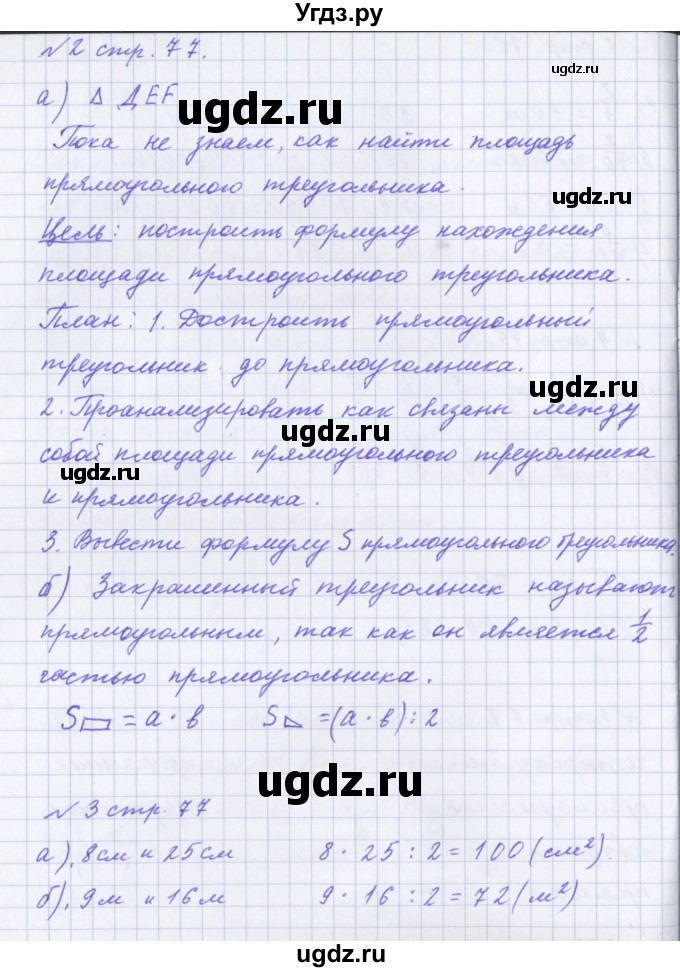 Угдз.ру
№2 стр. 77.
ugdz.ru
а) Δ ДEF
ugdz.ru
Пока не знаем, как найти площадь
прямоугольного треугольника.
ugdz.ru
Цель: построить формулу нахождения
площади прямоугольного треугольника.
План: 1. Достроить прямоугольный
треугольник до прямоугольника.
ugdz.ru
2. Проанализировать как связаны между
ugdz.ru
собой площади прямоугольного треугольника
ugdz.ru
и прямоугольника.
3. Вывести формулу S прямоугольного треугольника.
ugdz.ru
б) Закрашенный треугольник называют
прямоугольным, так как он является 1/2
частью прямоугольника.
ugdz.ru
S▭ = a · в S◺ = (a · в) : 2
ugdz.ru
№3 стр. 77
а), 8см и 25см 8 · 25 : 2 = 100 (см²).
б), 9м и 16м 9 · 16 : 2 = 72 (м²)
ugdz.ru
ugdz.ru